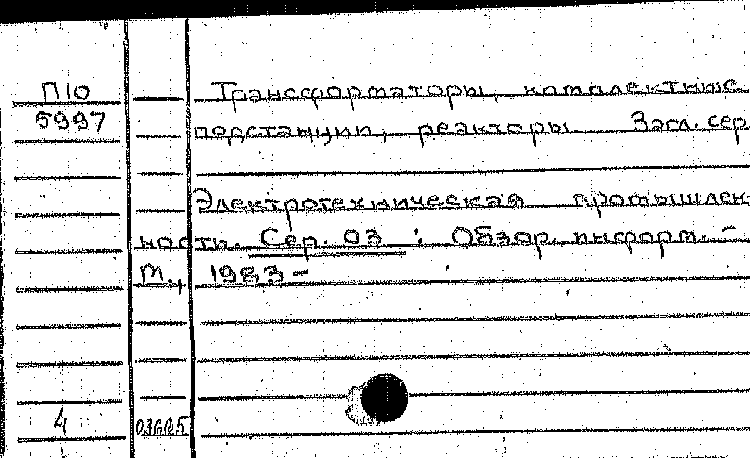 П10
5997
Трансформаторы, комплектные
подстанции, реакторы. Загл. сер.
Электротехническая промышлен-
ность. Сер. 03 : Обзор. информ. -
М., 1983-
4